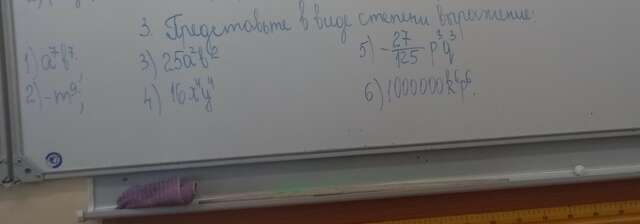 3. Представьте в виде степени выражение:
1) a⁷b⁷.
2) -m⁹;
3) 25a²b²
4) 16x⁴y⁴
5) -27/125 p³q³
6) 1000000k⁶p⁶.